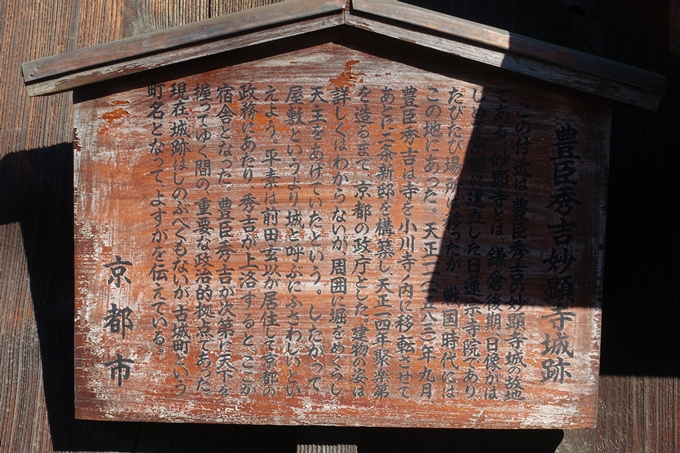 豊臣秀吉妙顕寺城跡
この付近は、豊臣秀吉の妙顕寺城の故地
である。妙顕寺とは、鎌倉後期、日像がは
じめて京都に建立した日蓮宗寺院であり、
たびたび場所を移したが、戦国時代には
この地にあった。天正一一(一五八三)年九月、
豊臣秀吉は寺を小川寺ノ内に移転させて
あとに二条新邸を構築し、天正一四年聚楽第
を造るまで、京都の政庁とした。建物の姿は
詳しくはわからないが、周囲に堀をめぐらし
天主をあげていたという。したがって
屋敷というより城と呼ぶにふさわしいとい
えよう。平素は前田玄以が居住して京都の
政務にあたり、秀吉が上洛するとここが
宿舎となった。豊臣秀吉が次第に天下を
握ってゆく間の、重要な政治的拠点であった。
現在、城跡はしのぶべくもないが古城町という
町名となって、よすがを伝えている。
京都市